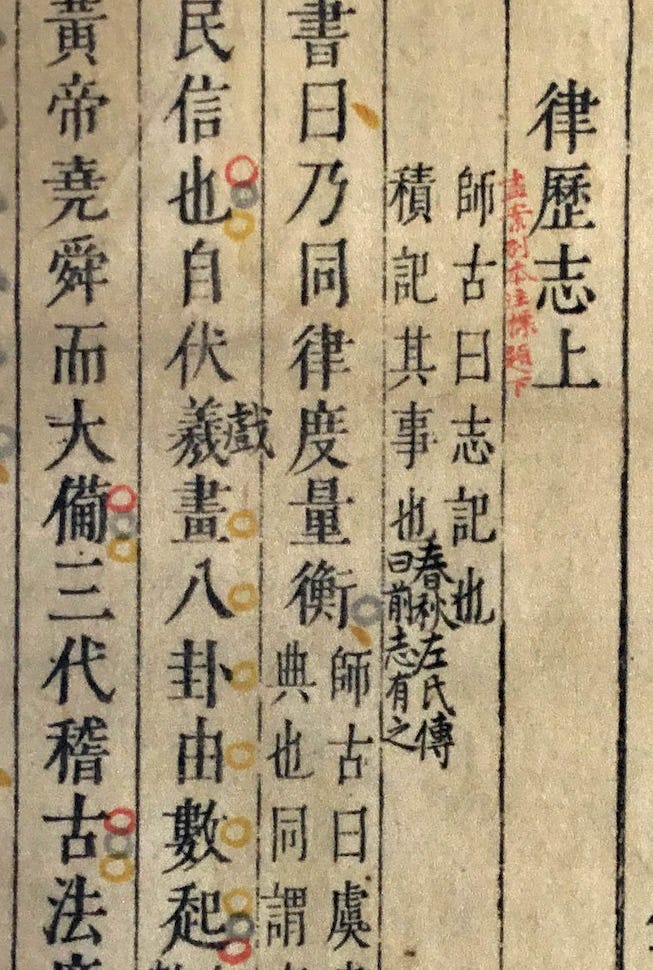 律歷志上
案別本注標題下
師古曰志記也
積記其事也
春秋左氏傳
曰前志有之
書曰乃同律度量衡
師古曰虞
典也同謂
民信也自伏羲畫八卦由數起
戲
黃帝堯舜而大備三代稽古法